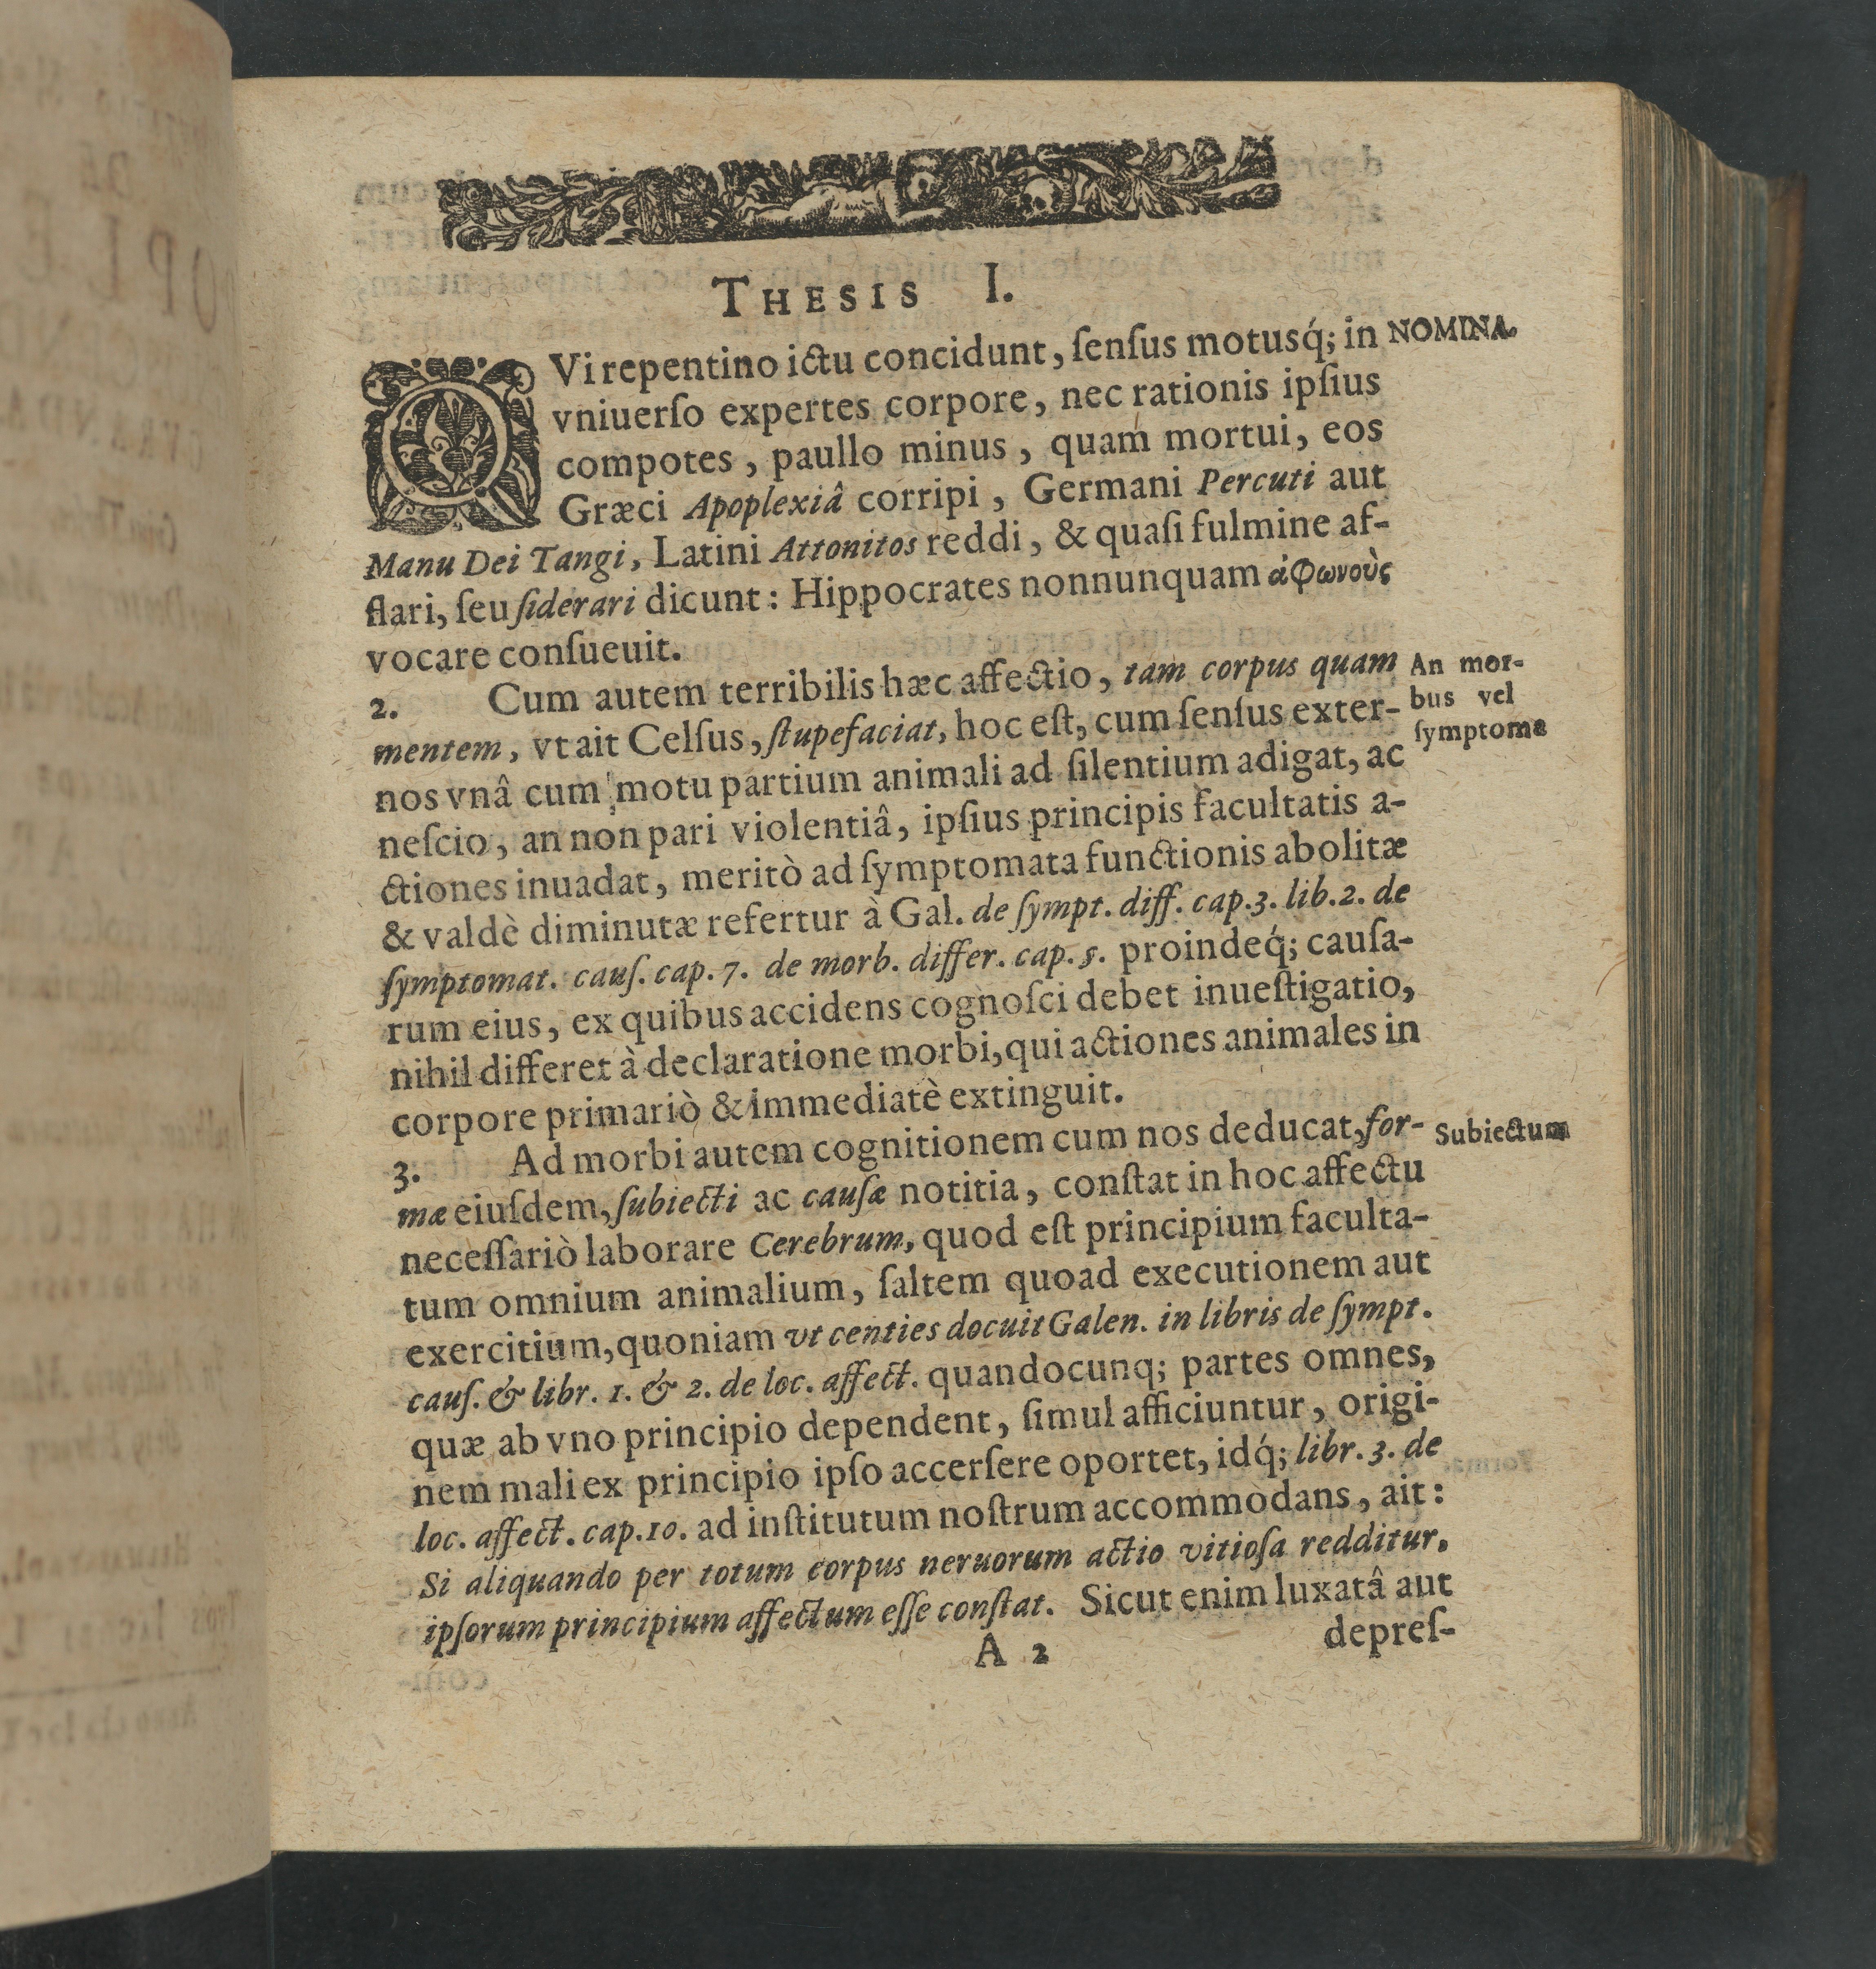 THESIS I.
QVi repentino ictu concidunt, ſenſus motusq́; in
NOMINA.
vniuerſo expertes corpore, nec rationis ipſius
compotes, paullo minus, quam mortui, eos
Græci Apoplexiâ corripi, Germani Percuti aut
Manu Dei Tangi, Latini Attonitos reddi, & quaſi fulmine af-
flari, ſeu ſiderari dicunt: Hippocrates nonnunquam ἀφωνοὺς
vocare conſueuit.
2. Cum autem terribilis hæc affectio, tam corpus quam
An mor-
bus vel
ſymptoma
mentem, vt ait Celſus, ſtupefaciat, hoc eſt, cum ſenſus exter-
nos vnâ cum motu partium animali ad ſilentium adigat, ac
neſcio, an non pari violentiâ, ipſius principis facultatis a-
ctiones inuadat, meritò ad ſymptomata functionis abolitæ
& valdè diminutæ refertur à Gal. de ſympt. diff. cap.3. lib.2. de
ſymptomat. cauſ. cap. 7. de morb. differ. cap. 5. proindeq́; cauſa-
rum eius, ex quibus accidens cognoſci debet inueſtigatio,
nihil differet à declaratione morbi, qui actiones animales in
corpore primariò & immediatè extinguit.
3. Ad morbi autem cognitionem cum nos deducat, for-
Subiectum
mæ eiuſdem, ſubiecti ac cauſæ notitia, conſtat in hoc affectu
neceſſariò laborare Cerebrum, quod eſt principium faculta-
tum omnium animalium, ſaltem quoad executionem aut
exercitium, quoniam vt centies docuit Galen. in libris de ſympt.
cauſ. & libr. 1. & 2. de loc. affect. quandocunq; partes omnes,
quæ ab vno principio dependent, ſimul afficiuntur, origi-
nem mali ex principio ipſo accerſere oportet, idq́; libr. 3. de
loc. affect. cap.10. ad inſtitutum noſtrum accommodans, ait:
Si aliquando per totum corpus neruorum actio vitioſa redditur,
ipſorum principium affectum eſſe conſtat. Sicut enim luxatâ aut
A 2
depreſ-